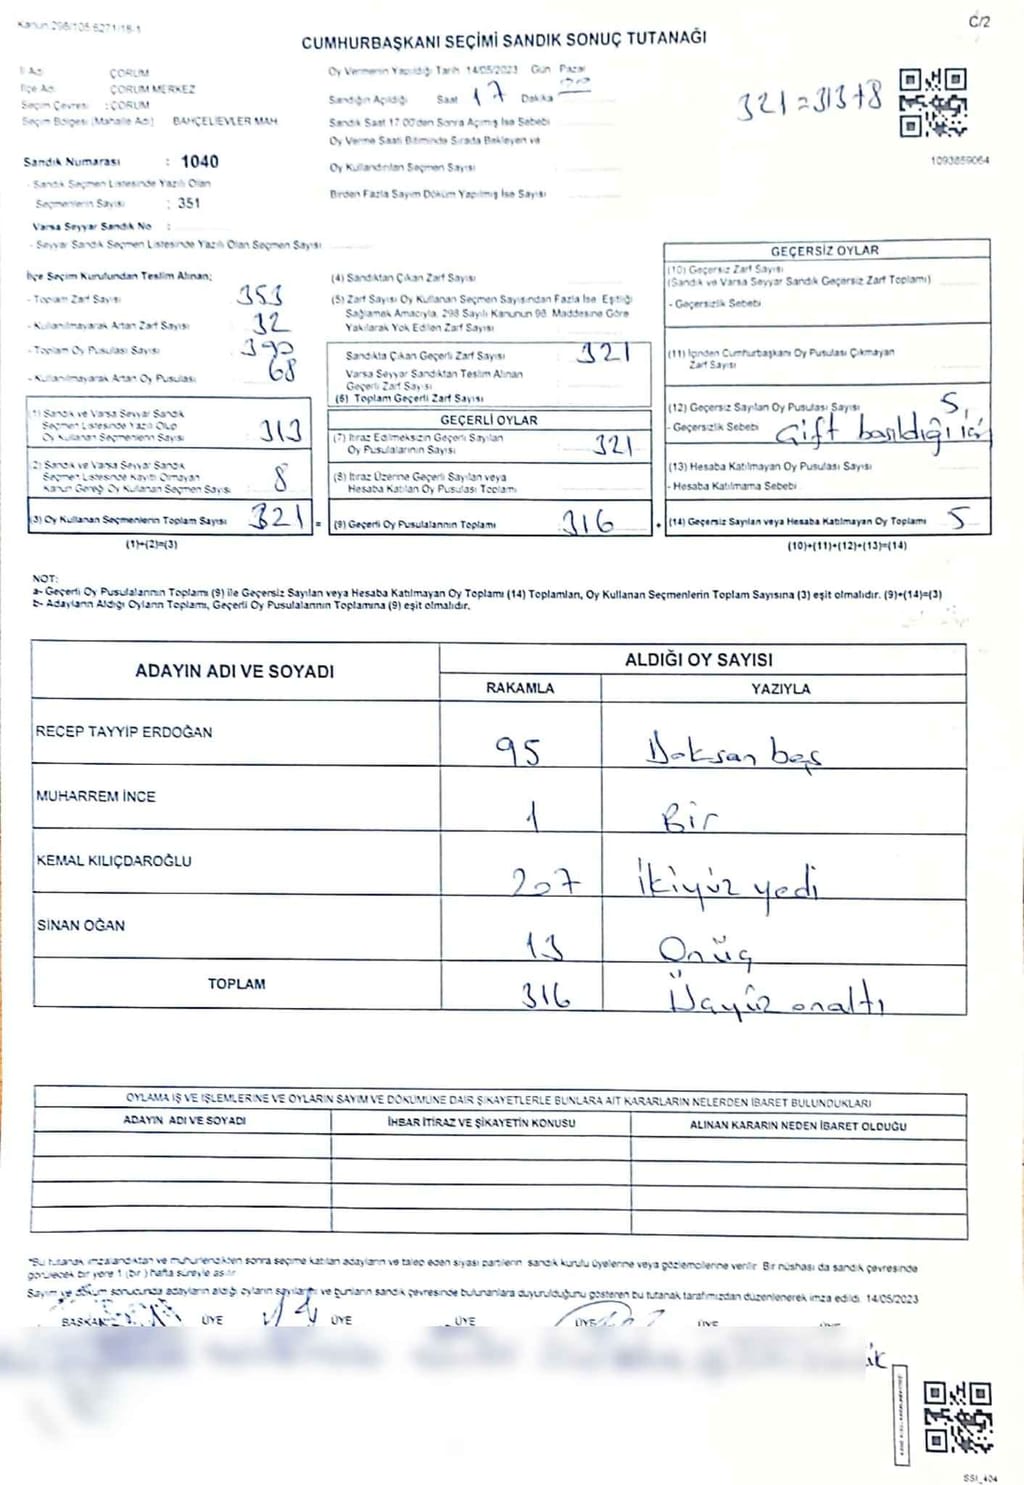 Kanun 298/105 6271/18-1
C/2
CUMHURBAŞKANI SEÇİMİ SANDIK SONUÇ TUTANAĞI
İl Adı : ÇORUM
İlçe Adı : ÇORUM MERKEZ
Seçim Çevresi : ÇORUM
Seçim Bölgesi (Mahalle Adı) BAHÇELİEVLER MAH
Oy Vermenin Yapıldığı Tarih 14/05/2023 Gün Pazar
Sandığın Açıldığı Saat 17 Dakika
Sandık Saat 17.00'den Sonra Açılmış İse Sebebi
Oy Verme Saati Bitiminde Sırada Bekleyen ve
Oy Kullandırılan Seçmen Sayısı
Birden Fazla Sayım Döküm Yapılmış İse Sayısı
321=313+8
1093859064
Sandık Numarası : 1040
- Sandık Seçmen Listesinde Yazılı Olan
Seçmenlerin Sayısı : 351
Varsa Seyyar Sandık No :
- Seyyar Sandık Seçmen Listesinde Yazılı Olan Seçmen Sayısı
İlçe Seçim Kurulundan Teslim Alınan;
- Toplam Zarf Sayısı 353
- Kullanılmayarak Artan Zarf Sayısı 32
- Toplam Oy Pusulası Sayısı 390
- Kullanılmayarak Artan Oy Pusulası 68
(1) Sandık ve Varsa Seyyar Sandık
Seçmen Listesinde Yazılı Olup
Oy Kullanan Seçmenlerin Sayısı 313
(2) Sandık ve Varsa Seyyar Sandık
Seçmen Listesinde Kayıtlı Olmayan
Kanun Gereği Oy Kullanan Seçmen Sayısı 8
(3) Oy Kullanan Seçmenlerin Toplam Sayısı 321 =
(1)+(2)=(3)
(4) Sandıktan Çıkan Zarf Sayısı
(5) Zarf Sayısı Oy Kullanan Seçmen Sayısından Fazla İse, Eşitliği
Sağlamak Amacıyla, 298 Sayılı Kanunun 98. Maddesine Göre
Yakılarak Yok Edilen Zarf Sayısı
Sandıkta Çıkan Geçerli Zarf Sayısı 321
Varsa Seyyar Sandıktan Teslim Alınan
Geçerli Zarf Sayısı
(6) Toplam Geçerli Zarf Sayısı
GEÇERLİ OYLAR
(7) İtiraz Edilmeksizin Geçerli Sayılan
Oy Pusulalarının Sayısı 321
(8) İtiraz Üzerine Geçerli Sayılan veya
Hesaba Katılan Oy Pusulası Toplamı
(9) Geçerli Oy Pusulalarının Toplamı 316 +
GEÇERSİZ OYLAR
(10) Geçersiz Zarf Sayısı
(Sandık ve Varsa Seyyar Sandık Geçersiz Zarf Toplamı)
- Geçersizlik Sebebi
(11) İçinden Cumhurbaşkanı Oy Pusulası Çıkmayan
Zarf Sayısı
(12) Geçersiz Sayılan Oy Pusulası Sayısı 5,
- Geçersizlik Sebebi Çift basıldığı için
(13) Hesaba Katılmayan Oy Pusulası Sayısı
- Hesaba Katılmama Sebebi
(14) Geçersiz Sayılan veya Hesaba Katılmayan Oy Toplamı 5
(10)+(11)+(12)+(13)=(14)
NOT:
a- Geçerli Oy Pusulalarının Toplamı (9) ile Geçersiz Sayılan veya Hesaba Katılmayan Oy Toplamı (14) Toplamları, Oy Kullanan Seçmenlerin Toplam Sayısına (3) eşit olmalıdır. (9)+(14)=(3)
b- Adayların Aldığı Oyların Toplamı, Geçerli Oy Pusulalarının Toplamına (9) eşit olmalıdır.
ADAYIN ADI VE SOYADI
ALDIĞI OY SAYISI
RAKAMLA YAZIYLA
RECEP TAYYİP ERDOĞAN 95 Doksan beş
MUHARREM İNCE 1 Bir
KEMAL KILIÇDAROĞLU 207 İkiyüz yedi
SİNAN OĞAN 13 Onüç
TOPLAM 316 Üçyüz onaltı
OYLAMA İŞ VE İŞLEMLERİNE VE OYLARIN SAYIM VE DÖKÜMÜNE DAİR ŞİKAYETLERLE BUNLARA AİT KARARLARIN NELERDEN İBARET BULUNDUKLARI
ADAYIN ADI VE SOYADI İHBAR İTİRAZ VE ŞİKAYETİN KONUSU ALINAN KARARIN NEDEN İBARET OLDUĞU
*Bu tutanak imzalandıktan ve mühürlendikten sonra seçime katılan adayların ve talep eden siyasi partilerin sandık kurulu üyelerine veya gözlemcilerine verilir. Bir nüshası da sandık çevresinde
görülecek bir yere 1 (bir) hafta süreyle asılır
Sayım ve döküm sonucunda adayların aldığı oyların sayılarını ve bunların sandık çevresinde bulunanlara duyurulduğunu gösteren bu tutanak tarafımızdan düzenlenerek imza edildi. 14/05/2023
BAŞKAN ÜYE ÜYE ÜYE ÜYE ÜYE
SSI_404